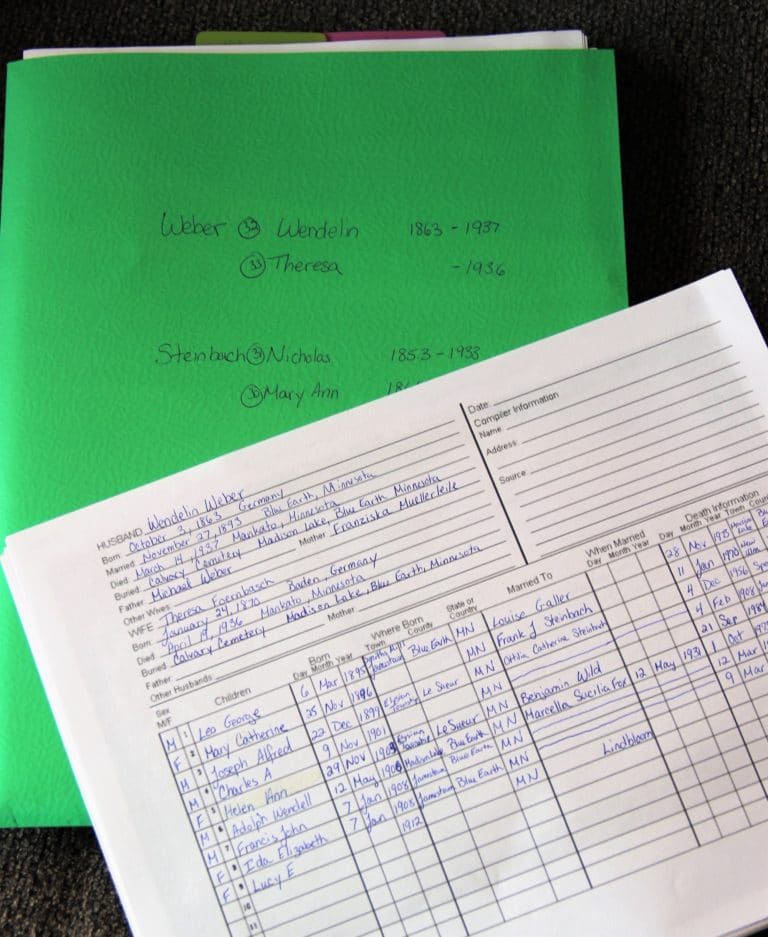 Weber 33 Wendelin 1863 - 1937
33 Theresa - 1936
Steinbach Nicholas 1853 - 1933
30 Mary Ann
Date
Compiler Information
Name
Address
Source
HUSBAND Wendelin Weber
Born October 3, 1863 Germany
Married November 27, 1893 Blue Earth, Minnesota
Died March 14, 1937 Mankato, Minnesota
Buried Calvary Cemetery Madison Lake, Blue Earth Minnesota
Father Michael Weber Mother Franziska Muellerleile
Other Wives
WIFE Theresa Foernbasch
Born January 24, 1870 Baden, Germany
Died April 19, 1936 Mankato, Minnesota
Buried Calvary Cemetery Madison Lake, Blue Earth, Minnesota
Father Mother
Other Husbands
Sex M/F Children Born Day Month Year Where Born Town County State or Country Married To When Married Day Month Year Death Information Day Month Year Town
M 1 Leo George 6 Mar 1895 Jamestown Blue Earth MN Louise Galler 28 Nov
F 2 Mary Catherine 25 Nov 1896 MN Frank J Steinbach 11 Jan 1970 New
M 3 Joseph Alfred 22 Dec 1899 Le Sueur MN Catherine Steinbach 4 Dec
M 4 Charles A 9 Nov 1901 MN 4 Feb 1908
F 5 Helen Ann 29 Nov Le Sueur MN Benjamin Wild 21 Sep
M 6 Adolph Wendell 12 May Madison Lake Blue Earth MN Marcella Sucilia Fox 12 May 1931 1 Oct
M 7 Francis John 7 Jan 1908 Jamestown Blue Earth MN 12 Mar
F 8 Ida Elizabeth 7 Jan 1908 Jamestown Blue Earth MN 9 Mar
F 9 Lucy E 1912 MN Lindbloom
10
11